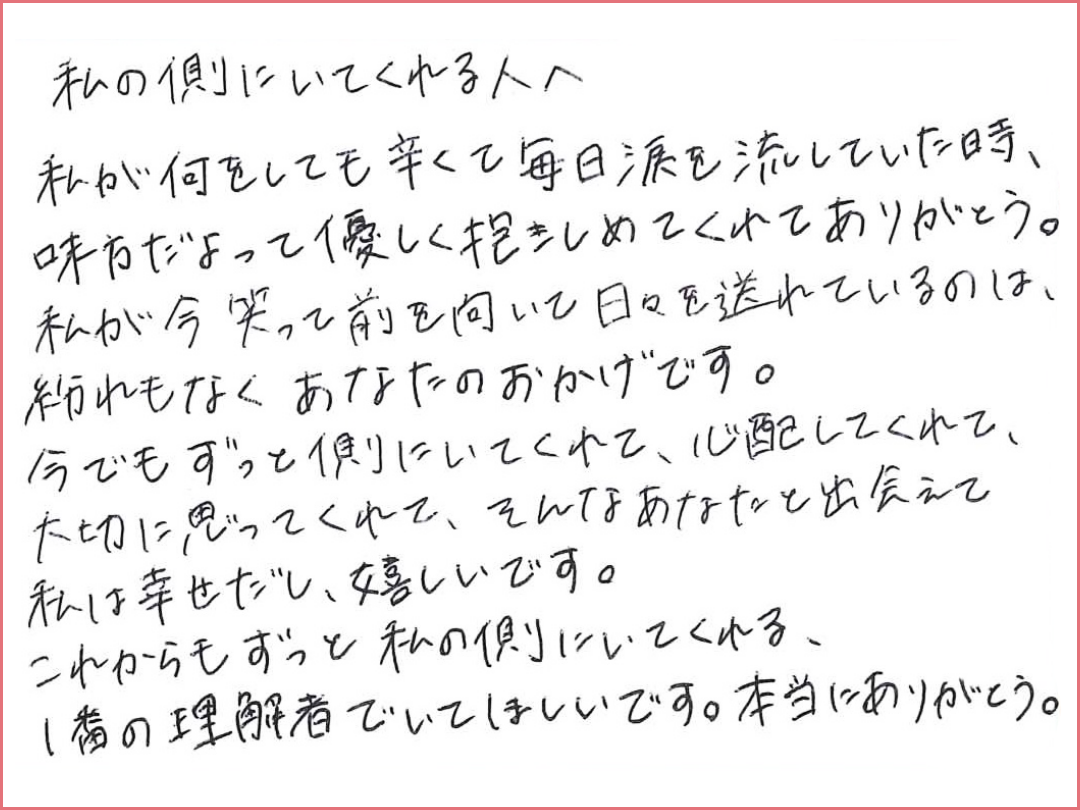 私の側にいてくれる人へ
私が何をしても辛くて毎日涙を流していた時、
味方だよって優しく抱きしめてくれてありがとう。
私が今笑って前を向いて日々を送れているのは、
紛れもなくあなたのおかげです。
今でもずっと側にいてくれて、心配してくれて、
大切に思ってくれて、そんなあなたと出会えて
私は幸せだし、嬉しいです。
これからもずっと私の側にいてくれる、
1番の理解者でいてほしいです。本当にありがとう。